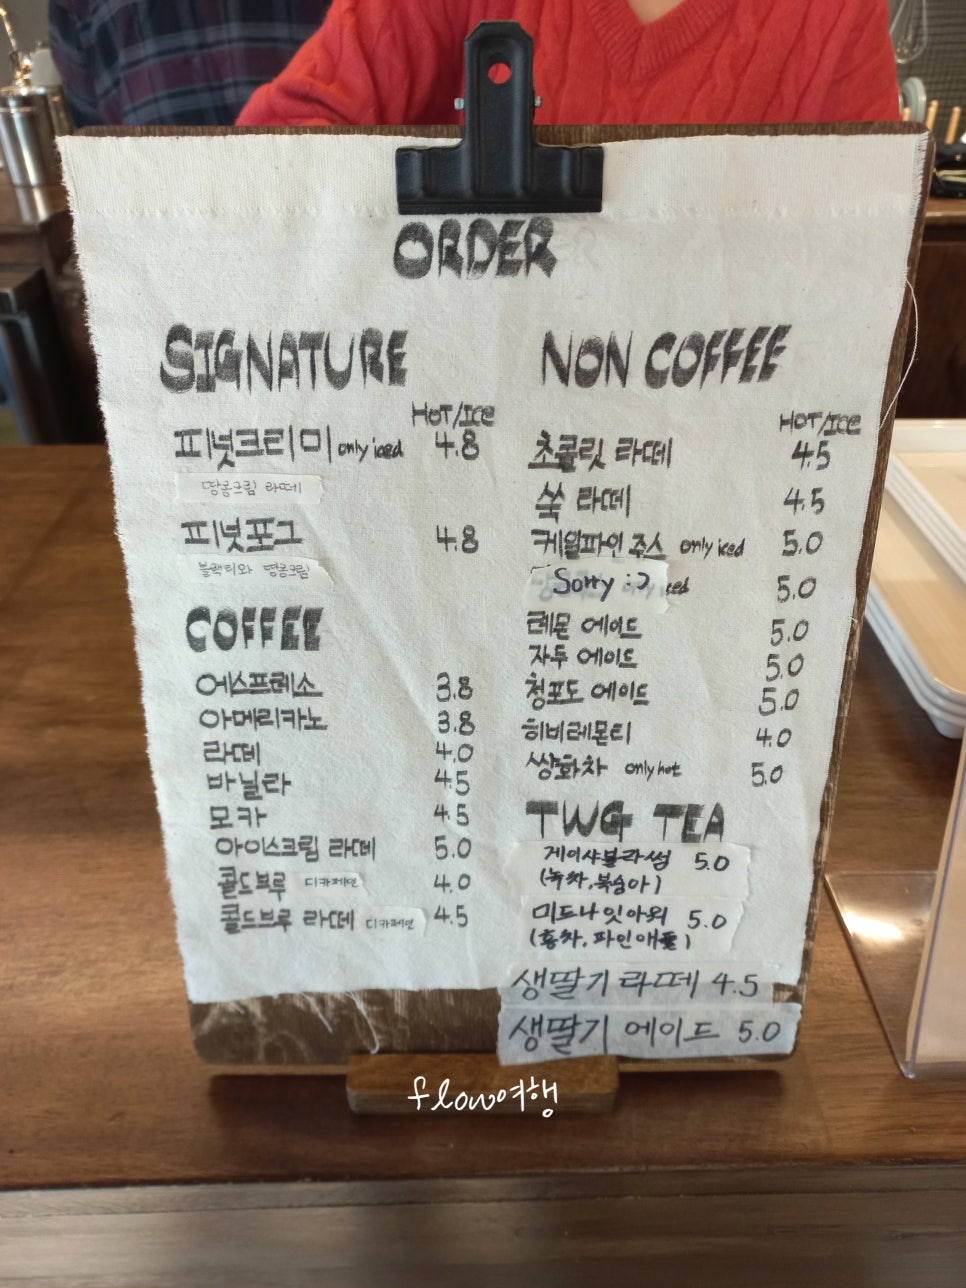 ORDER
SIGNATURE
HOT/ICE
피넛크리미 only iced 4.8
땅콩크림 라떼
피넛포그 4.8
블랙티와 땅콩크림
COFFEE
에스프레소 3.8
아메리카노 3.8
라떼 4.0
바닐라 4.5
모카 4.5
아이스크림 라떼 5.0
콜드브루 디카페인 4.0
콜드브루 라떼 디카페인 4.5
NON COFFEE
HOT/ICE
초콜릿 라떼 4.5
쑥 라떼 4.5
케일파인 주스 only iced 5.0
Sorry :) iced 5.0
레몬 에이드 5.0
자두 에이드 5.0
청포도 에이드 5.0
히비레몬티 4.0
쌍화차 only hot 5.0
TWG TEA
게이샤블라썸 5.0
(녹차,복숭아)
미드나잇아워 5.0
(홍차,파인애플)
생딸기 라떼 4.5
생딸기 에이드 5.0
flow여행